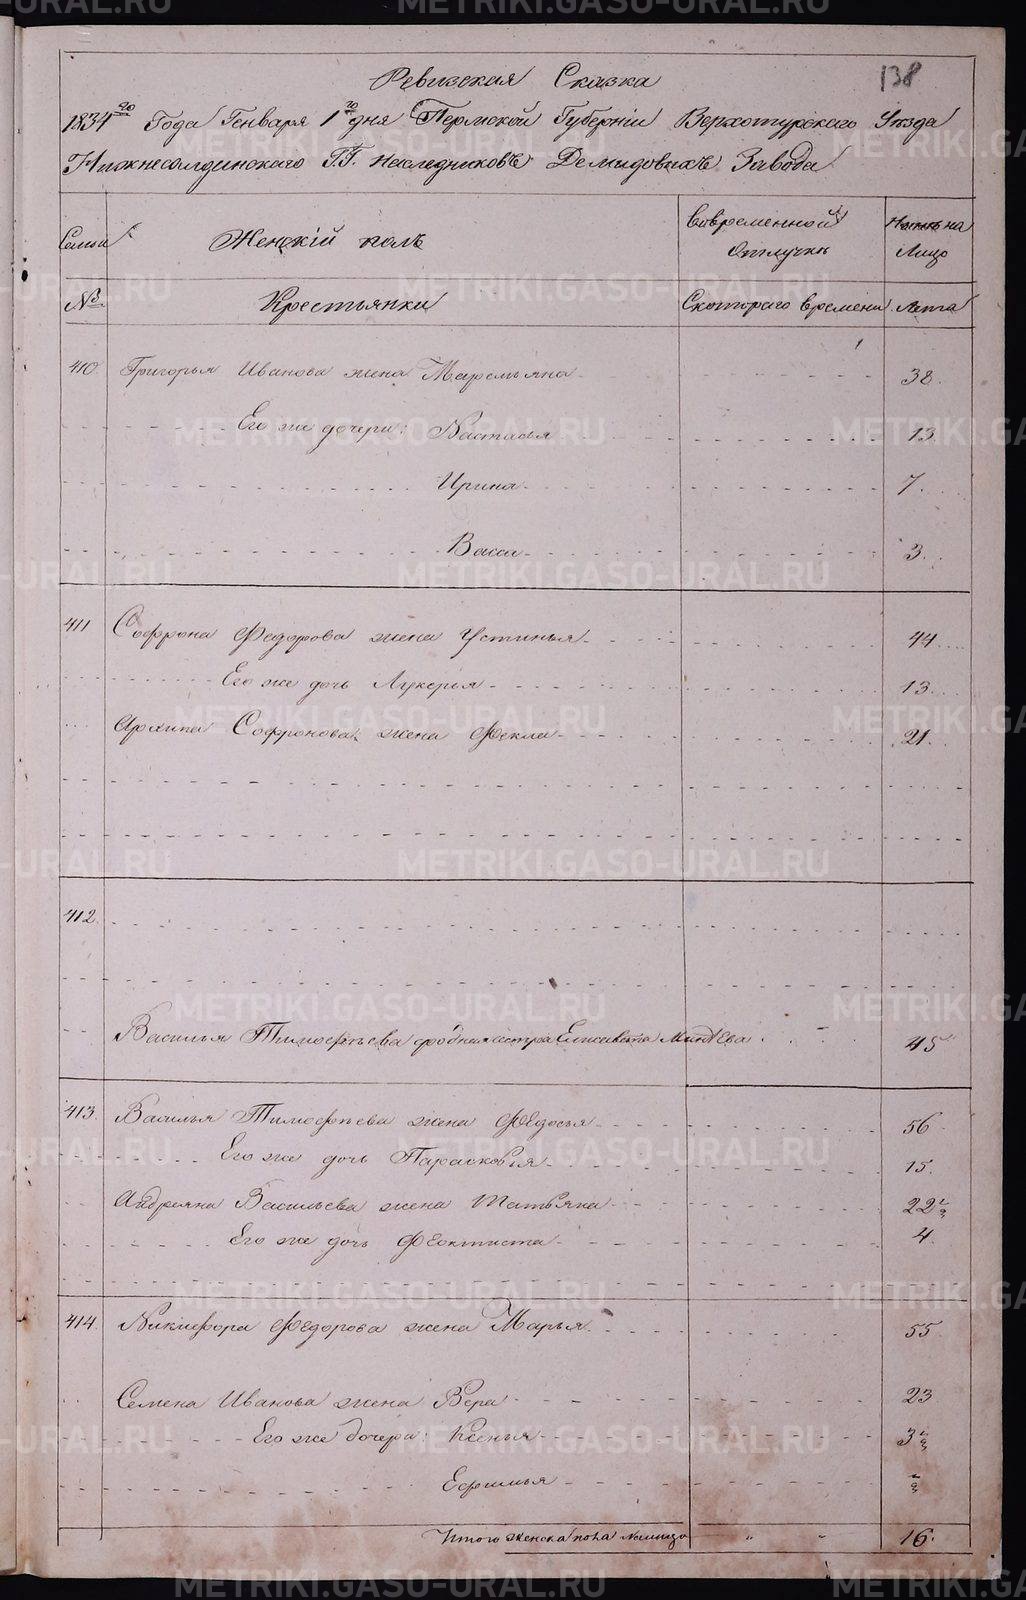 138
Ревизская Сказка
1834го Года Генваря 1го дня Пермской Губерніи Верхотурскаго Уѣзда
Нижнесалдинскаго Г.Г. Наследниковъ Демидовыхъ Завода
Семьи
Женскій полъ
Вовременной
Отлучки
на
Лицо
№
Крестьянки
Скотораго времени
Лета
410. Григорья Иванова жена Маремьяна 38.
Его же дочери: Настасья 13
Ирина 7.
Васса 3.
411 Софрона Федорова жена Устинья 44
Его же дочь Лукерья 13.
Архипа Софронова жена Фекла 21.
412.
Василья Тимофѣева родная сестра Елисавета 45
413. Василья Тимофѣева жена Федосья 56
Его же дочь Парасковья 15.
Андреяна Васильева жена Татьяна 22½
Его же дочь Феоктиста 4.
414. Никифора Федорова жена Марья 55.
Семена Иванова жена Вера 23
Его же дочери: Ксенья 3½
Ефимья ½
Итого женска пола налицо " " 16.
METRIKI.GASO-URAL.RU